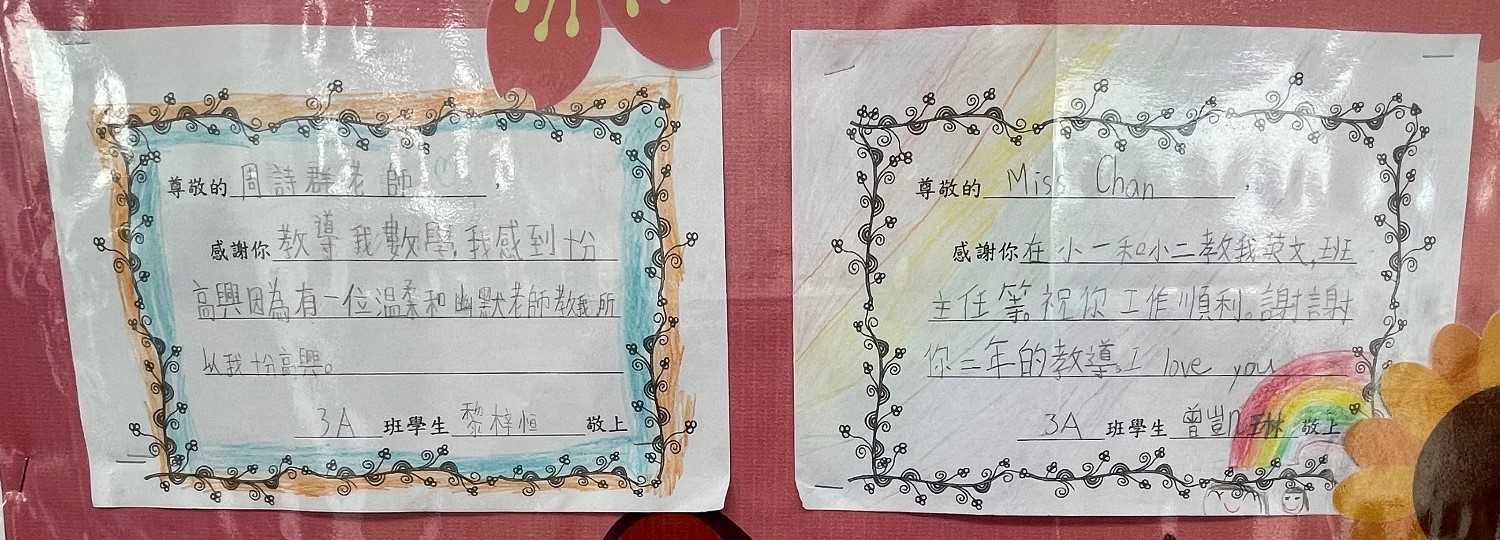 尊敬的周詩群老師,
感謝你教導我數學,我感到十份
高興因為有一位溫柔和幽默老師教我所
以我十份高興。
3A 班學生黎梓恒 敬上
尊敬的 Miss Chan,
感謝你在小一和小二教我英文,班
主任等。祝你工作順利。謝謝
你二年的教導。I love you
3A 班學生曾凱琳 敬上